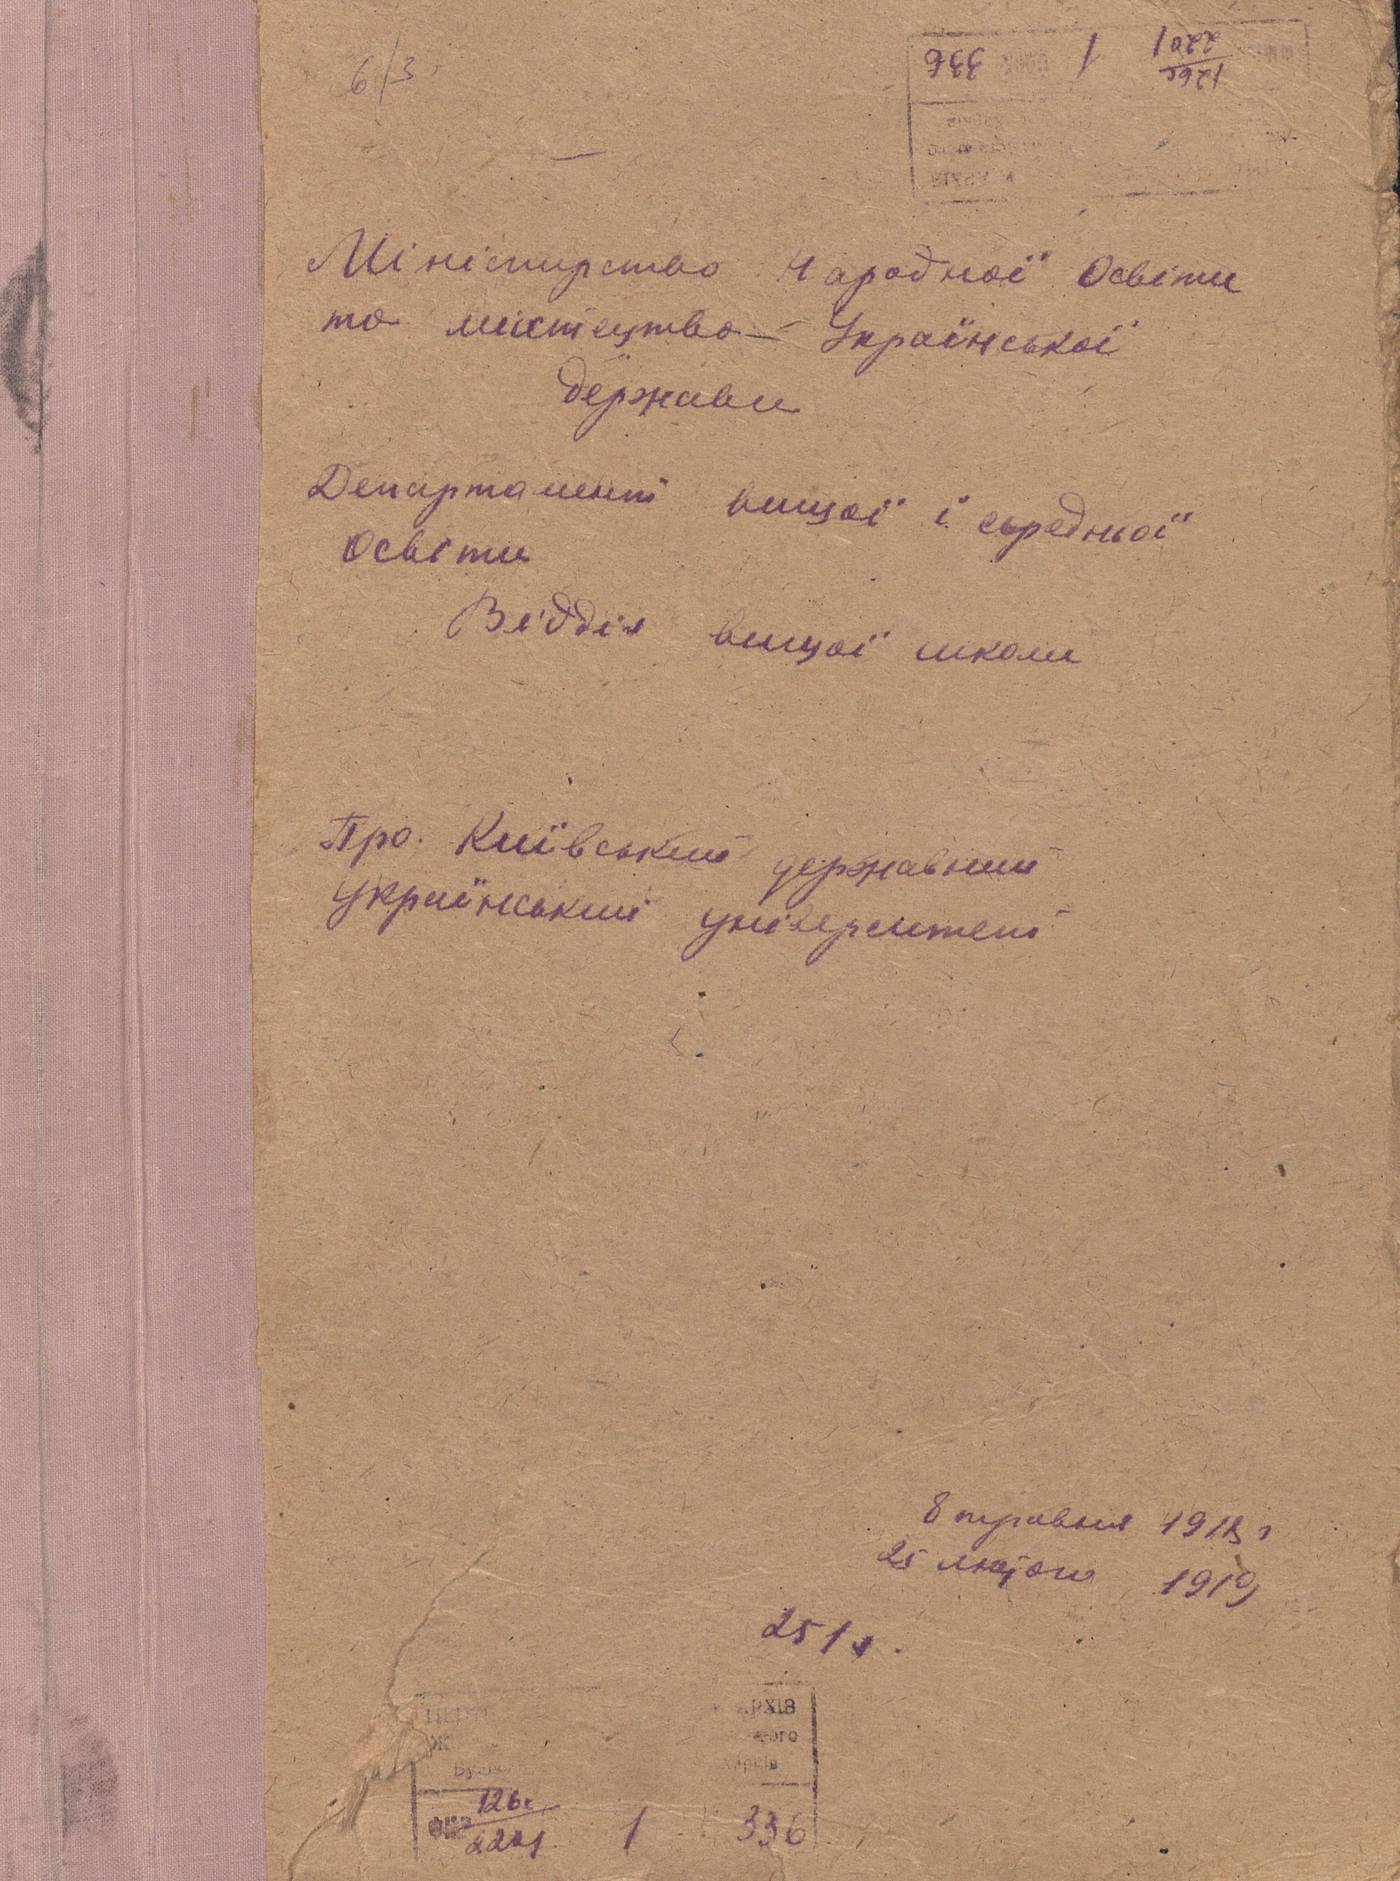 6/3
336 1 126с 2201
Міністирство Народної Освіти
та містецтва Української
держави
Департамент вищої і середньої
Освіти
Відділ вищої школи
Про. Київський державний
український університет
8 травня 1918 г
25 лютого 1919
251 л.
АРХІВ
126с
2201 1 336